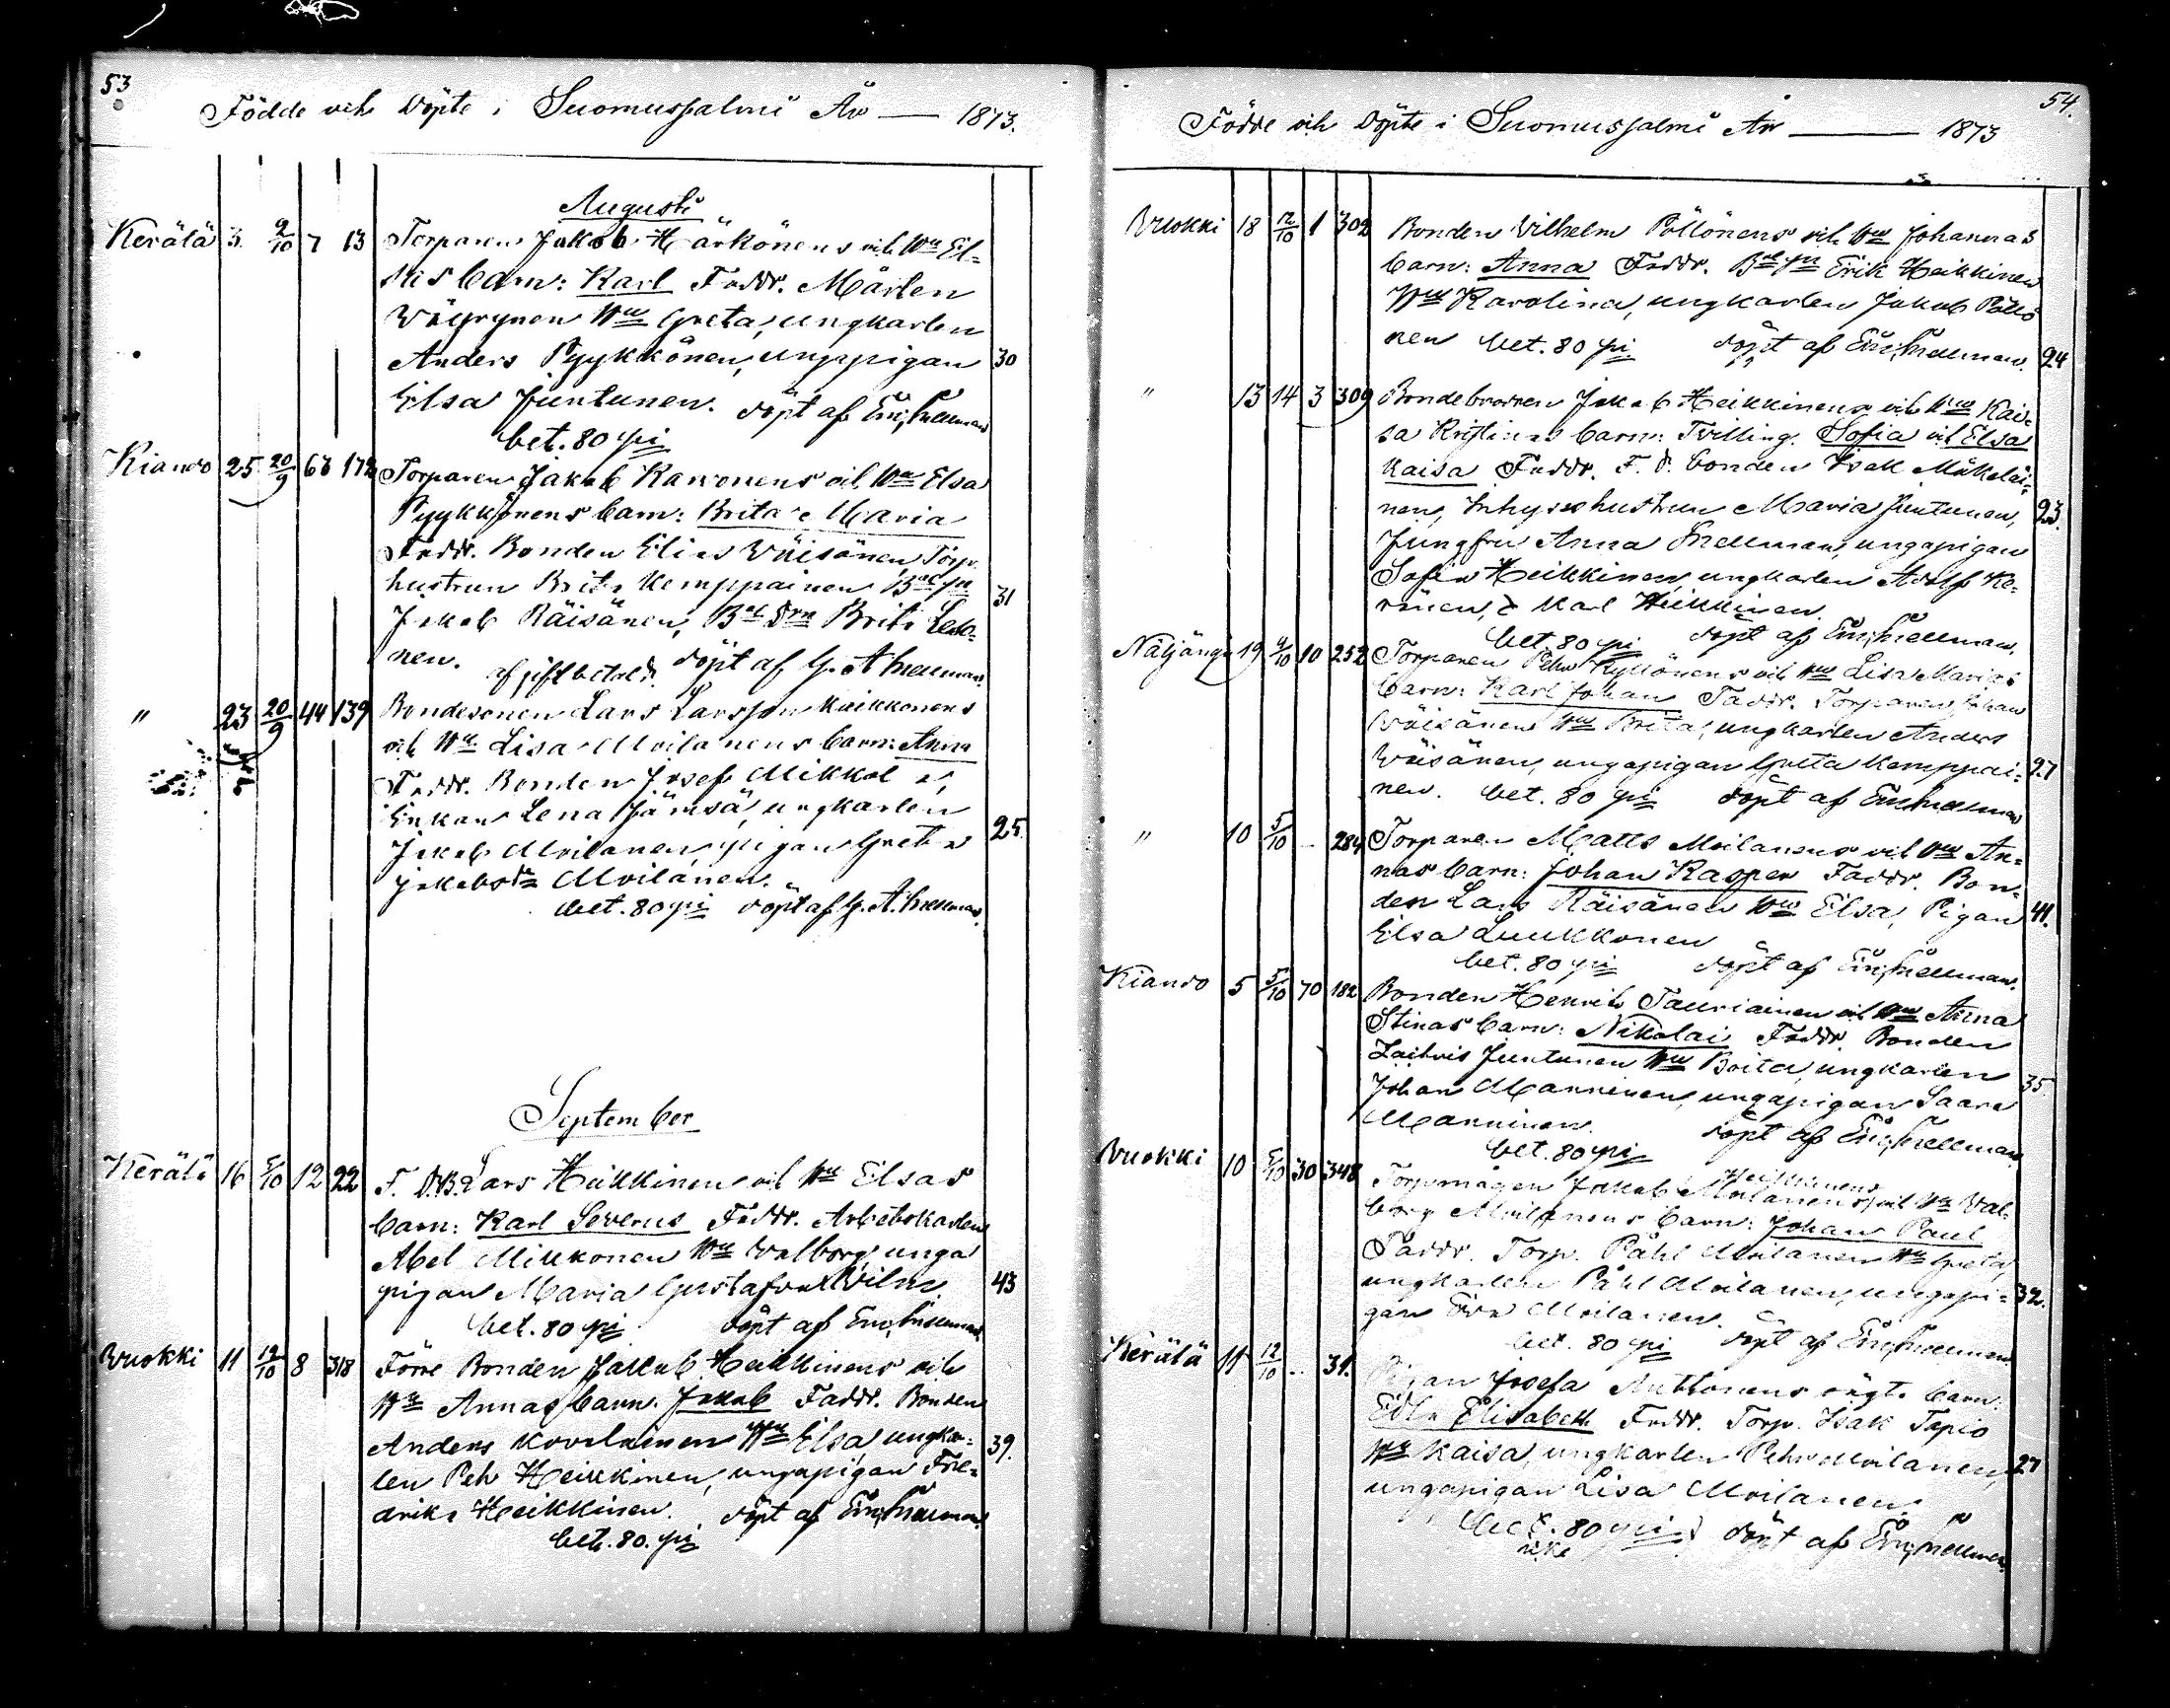 53
Födde och Döpte i Suomussalmi År — 1873.
Augusti
Kerälä 3. 9/10 7 13 Torparen Jakob Härkönens och Hu El=
sas barn: Karl Faddr. Mårten
Wäyrynen Hu Greta, ungkarlen
Anders Pyykkönen, ungapigan 30
Elsa Juntunen. döpt af Em. Snellman
bet. 80 pi
Kiando 25 20/9 67 172 Torparen Jakob Karvonens och Hu Elsa
Pyykkönens barn: Brita Maria
Faddr. Bonden Elias Wäisänen Torp.
hustrun Brita Kemppainen, 31
Jakob Räisänen, Brita Lesk=
nen. döpt af G. A. Snellman.
" 23 20/9 44 139 Bondesonen Lars Larsson Kaikkonens
och Hu Lisa Moilanens barn: Anna
Faddr. Bonden Josef Mikkola,
Enkan Lena Jämsä, ungkarlen
Jakob Moilanen, pigan Greta 25.
Jakobsdr Moilanen.
bet. 80 pi döpt af G. A. Snellman.
September
Kerälä 16 5/10 12 22 F. D. B. Lars Heikkinen och Hu Elsas
barn: Karl Severus Faddr. Arbetskarlen
Abel Mikkonen Hu Walborg, unga
pigan Maria Gustafva 43
bet. 80 pi döpt af Em. Snellman
Wuokki 11 12/10 8 318 Förre Bonden Jakob Heikkinens och
Hu Annas barn. Jakob Faddr. Bonden
Anders Kovalainen Hu Elsa, ungkar= 39.
len Pehr Heikkinen, ungapigan Fre=
drika Heikkinen. döpt af Em. Snellman.
bet. 80. pi
54.
Födde och Döpte i Suomussalmi År — 1873
Wuokki 18 12/10 1 302 Bonden Wilhelm Pöllönens och Hu Johannas
barn: Anna Faddr. Erik Heikkinen
Hu Karolina, ungkarlen Jakob Pöllö
nen bet. 80 pi döpt af Em. Snellman. 24
" 13 14 3 309 Bondebroren Jakob Heikkinens och Hu Kai=
sa Kristinas barn: Tvilling. Sofia och Elsa
Kaisa Faddr. F. d. bonden Isak Mäkeläi=
nen, Inhyses hustrun Maria Juntunen, 23.
Jungfru Anna Snellman, ungapigan
Sofia Heikkinen, ungkarlen Adolf Ke=
ränen, Karl Heikkinen.
bet. 80 pi döpt af Em. Snellman.
Näljängä 19 4/10 10 252 Torparen Pehr Kyllönens och Hu Lisa Marias
barn: Karl Johan Faddr. Torparen Johan
Wäisänen Hu Brita, ungkarlen Anders
Wäisänen, ungapigan Greta Kemppai= 27
nen. bet. 80 pi döpt af Em. Snellman
" 10 5/10 .. 284 Torparen Matts Moilanens och Hu An=
nas barn: Johan Kasper Faddr. Bon=
den Lars Räisänen Hu Elsa, Pigan 41.
Elsa Luukkonen
bet. 80 pi döpt af Em. Snellman.
Kiando 5 5/10 70 182 Bonden Henrik Tauriainen och Hu Anna
Stinas barn: Nikolai Faddr. Bonden
Juntunen Hu Brita, ungkarlen
Johan Manninen, ungapigan Saara 35.
Manninen. döpt af Em. Snellman
bet. 80 pi
Wuokki 10 5/10 30 348 Torpmågen Jakob Moilanens Heikkinens och Hu Wal=
borg Moilanens barn: Johan Paul
Faddr. Torp. Påhl Moilanen Hu Greta,
ungkarlen Påhl Moilanen, ungapi= 32.
gan Eva Moilanen.
bet. 80 pi döpt af Em. Snellman
Kerälä 11 12/10 .. 31. Pigan Josefa Anttonens oägta barn:
Edla Elisabeth Faddr. Torp. Isak Tapio
Hu Kaisa, ungkarlen Pehr Moilanen, 27
ungapigan Lisa Moilanen.
bet. 80 pi döpt af Em. Snellman
icke